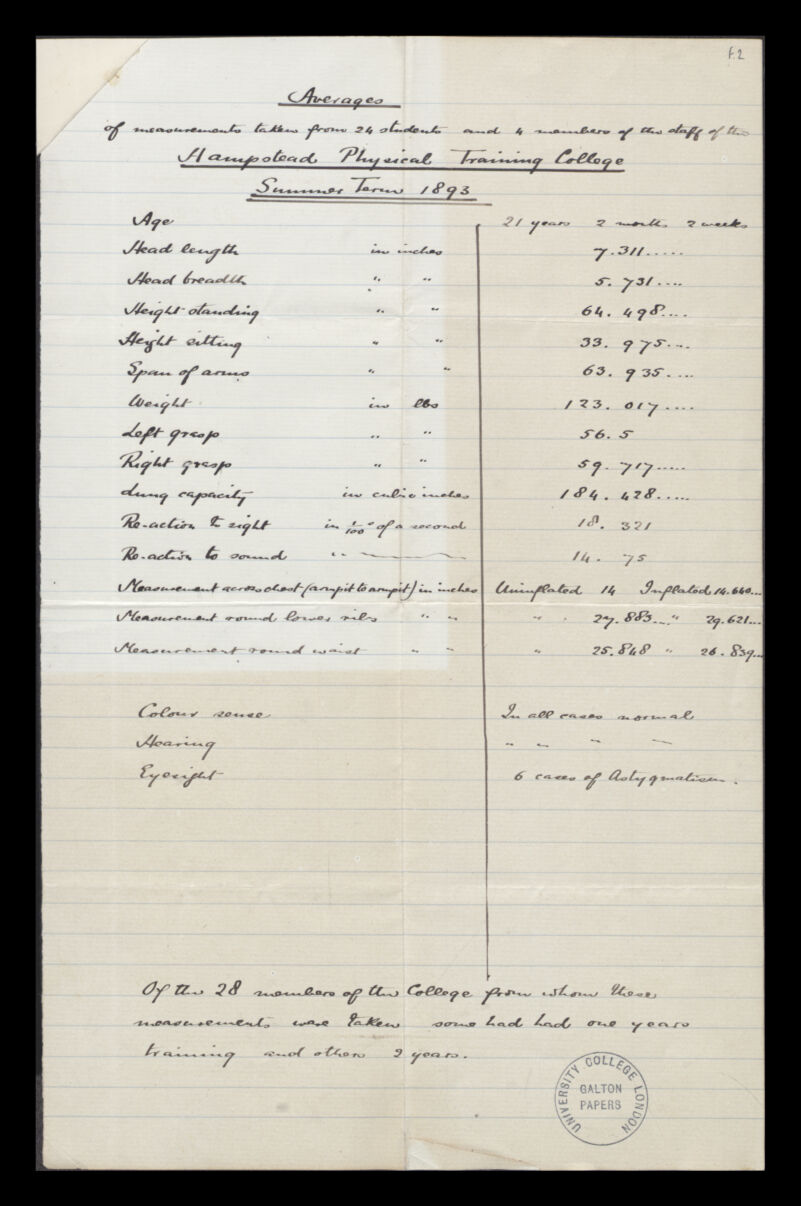 f.2
Averages
of measurements taken from 24 students and 4 members of the staff of the
Hampstead Physical Training College
Summer Term 1893
Age 21 years 2 months 2 weeks
Head length in inches 7.311.....
Head breadth " " 5.731....
Height standing " " 64.498....
Height sitting " " 33.975....
Span of arms " " 63.935....
Weight in lbs 123.017....
Left grasp " " 56.5
Right grasp " " 59.717.....
Lung capacity in cubic inches 184.428.....
Re-action to sight in 1/100 of a second 18.321
Re-action to sound " 14.75
Measurement across chest (armpit to armpit) in inches Uninflated 14 Inflated 14.640...
Measurement round lower ribs " " " 27.883..." 29.621...
Measurement round waist " " " 25.848 " 26.839...
Colour sense In all cases normal
Hearing " " " "
Eyesight 6 cases of Astygmatism.
Of the 28 members of the College from whom these
measurements were taken some had had one years
training and others 2 years.
UNIVERSITY COLLEGE LONDON
GALTON
PAPERS